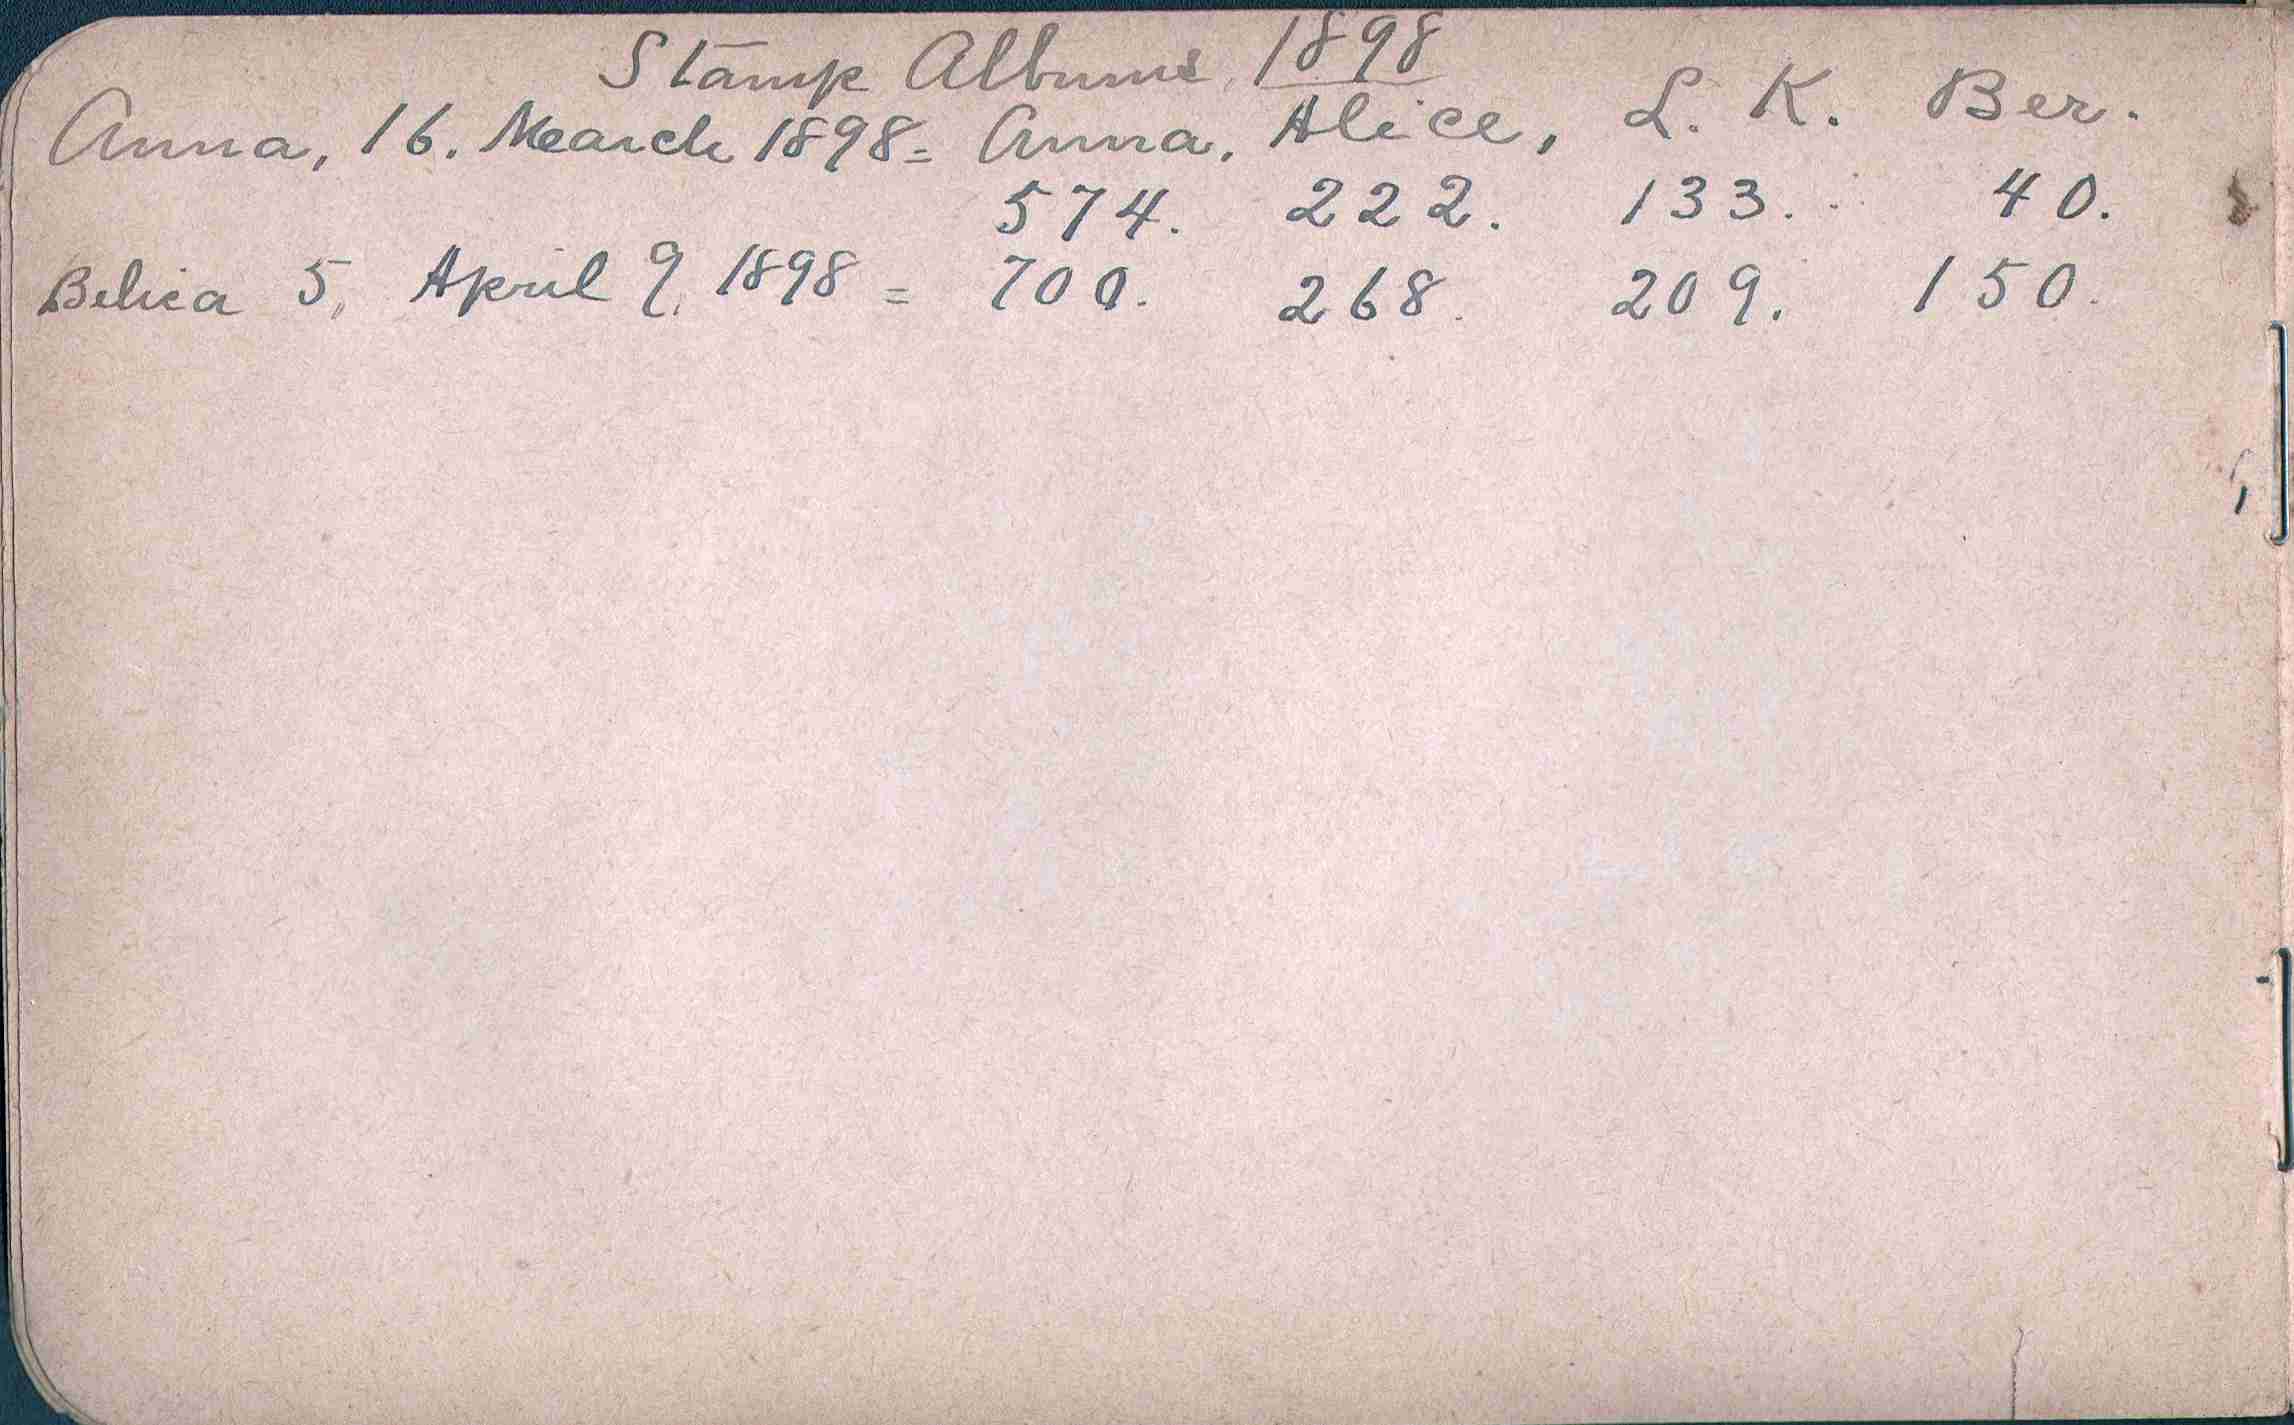 Stamp Albums 1898
Anna, 16. March 1898 = Anna, Alice, L. K. Ber.
574. 222. 133. 40.
5, April 9, 1898 = 700. 268. 209. 150.